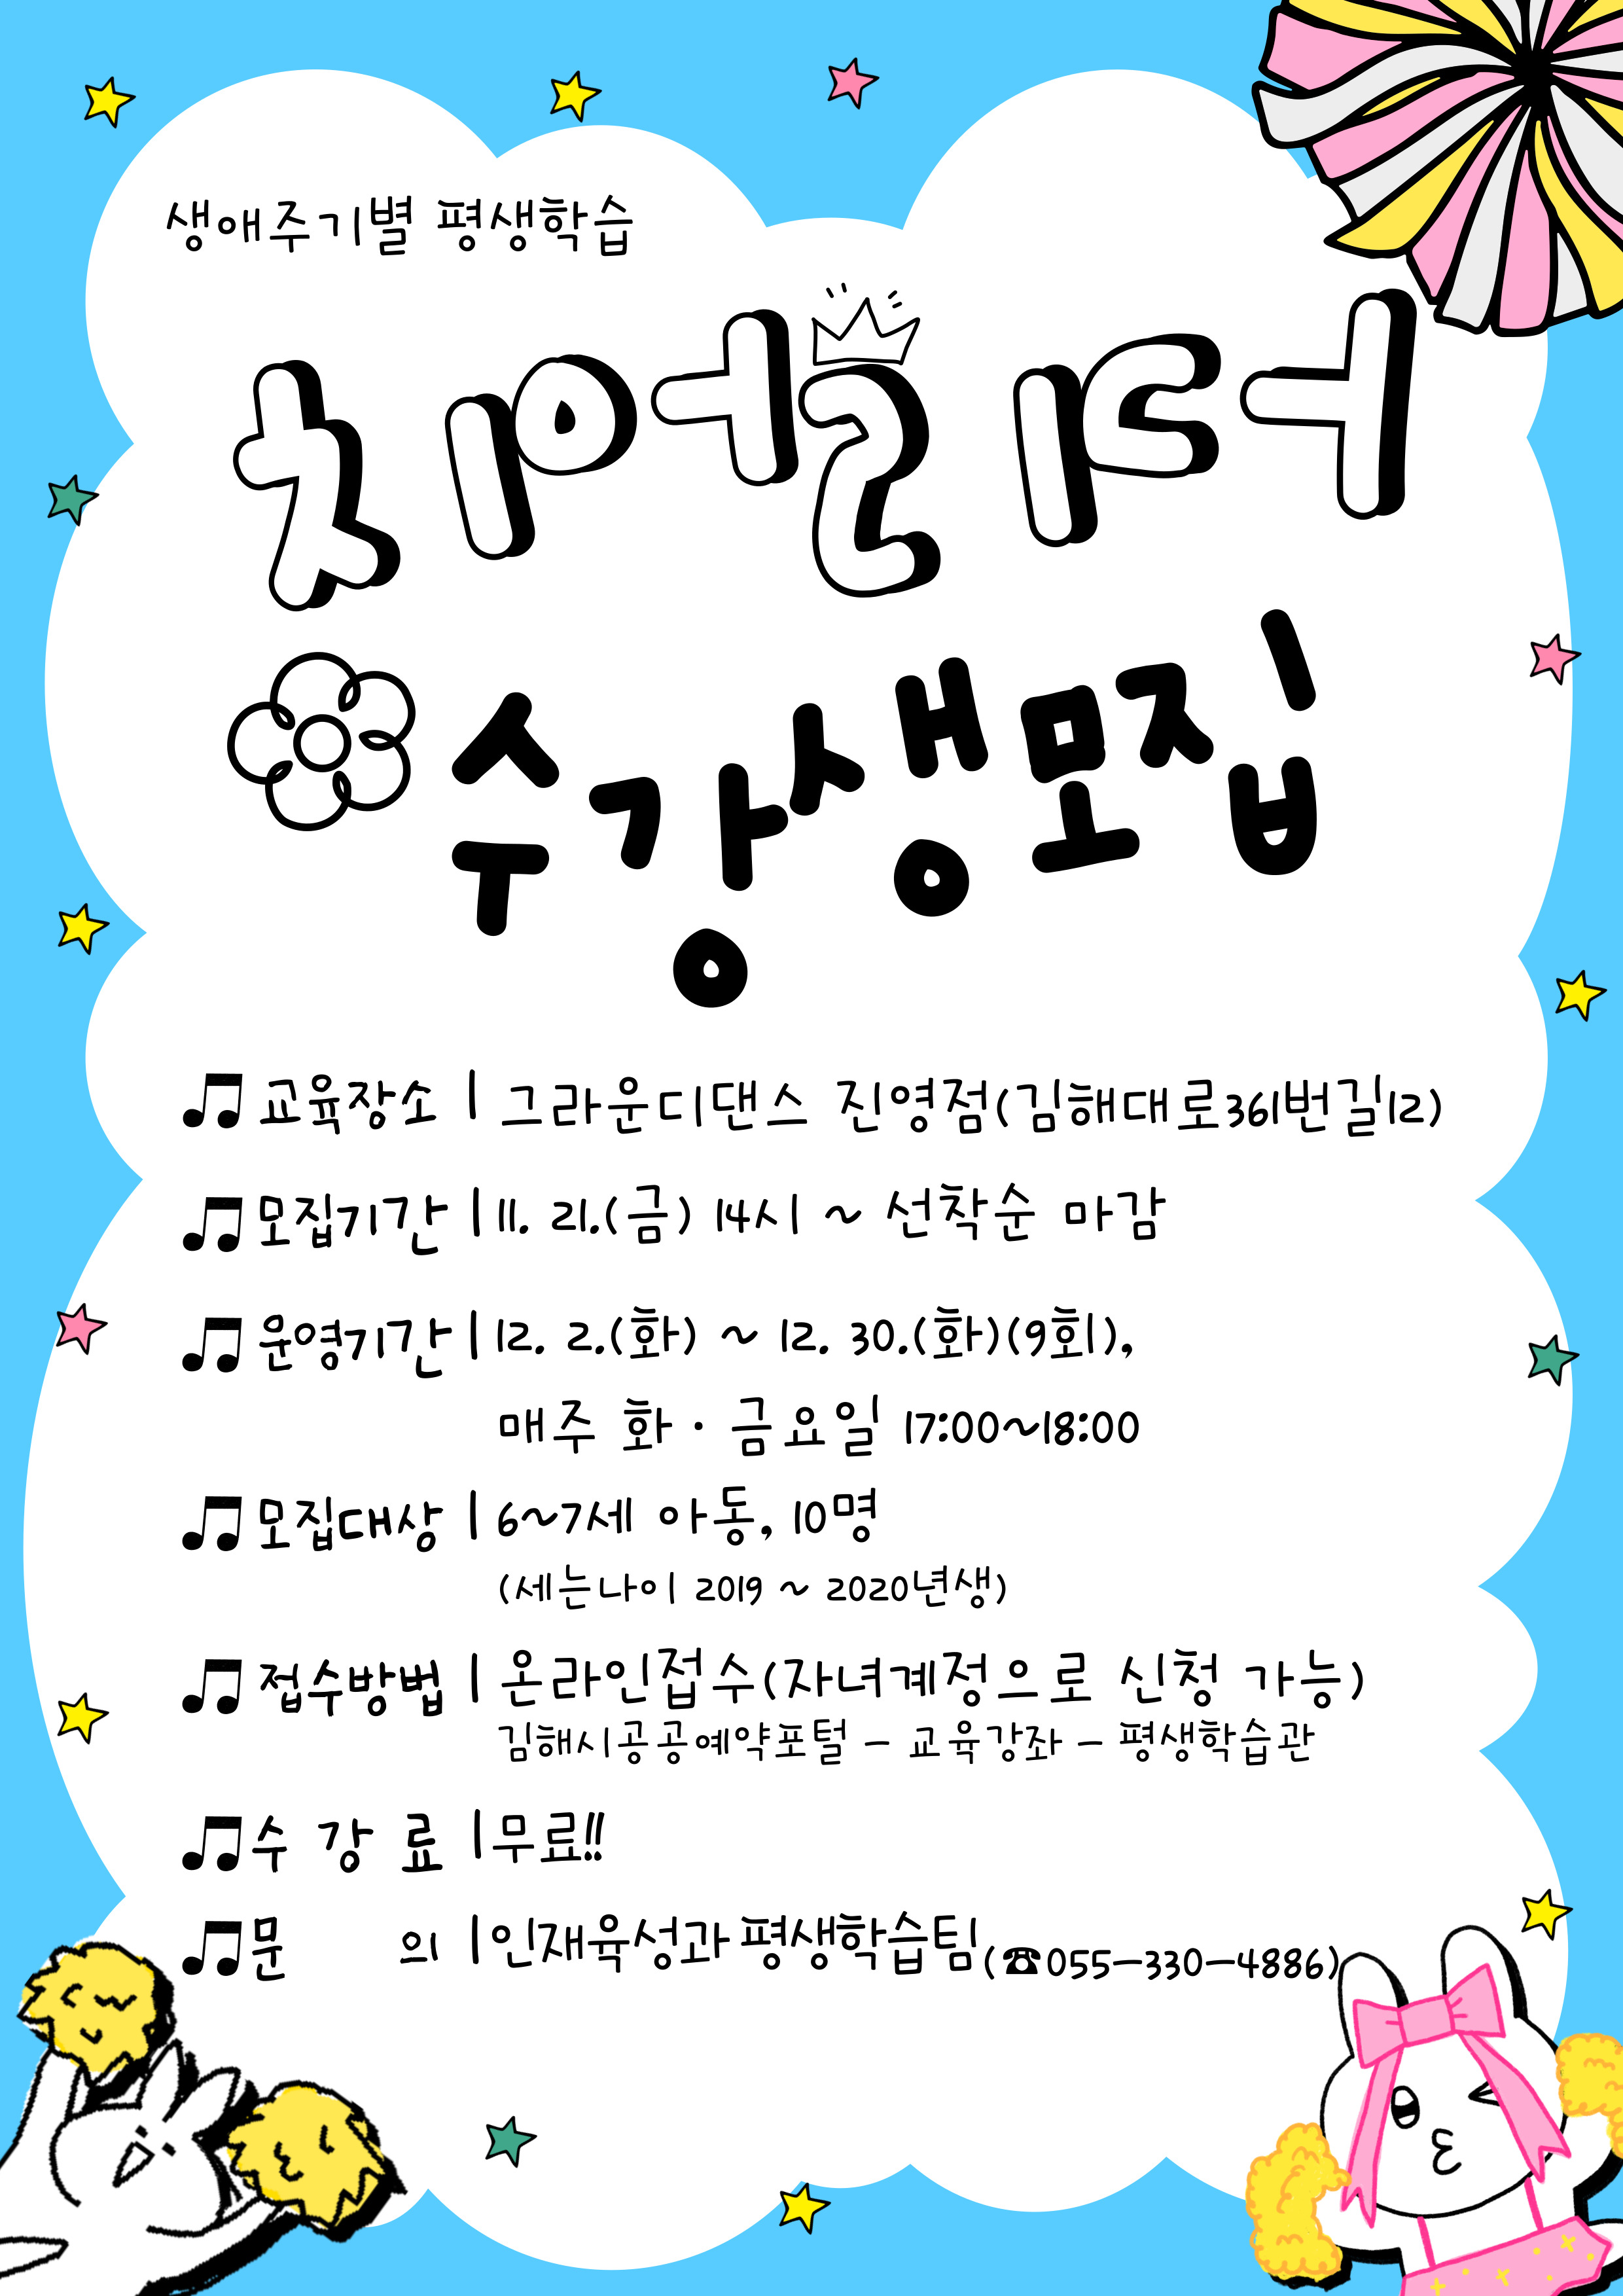 생애주기별 평생학습
치어리더
수강생모집
♫ 교육장소 | 그라운디댄스 진영점(김해대로361번길12)
♫ 모집기간 | 11. 21.(금) 14시 ~ 선착순 마감
♫ 운영기간 | 12. 2.(화) ~ 12. 30.(화)(9회),
매주 화 · 금요일 17:00~18:00
♫ 모집대상 | 6~7세 아동, 10명
(세는나이 2019 ~ 2020년생)
♫ 접수방법 | 온라인접수(자녀계정으로 신청 가능)
김해시공공예약포털 - 교육강좌 - 평생학습관
♫ 수 강 료 | 무료!!
♫ 문 의 | 인재육성과 평생학습팀(☎055-330-4886)